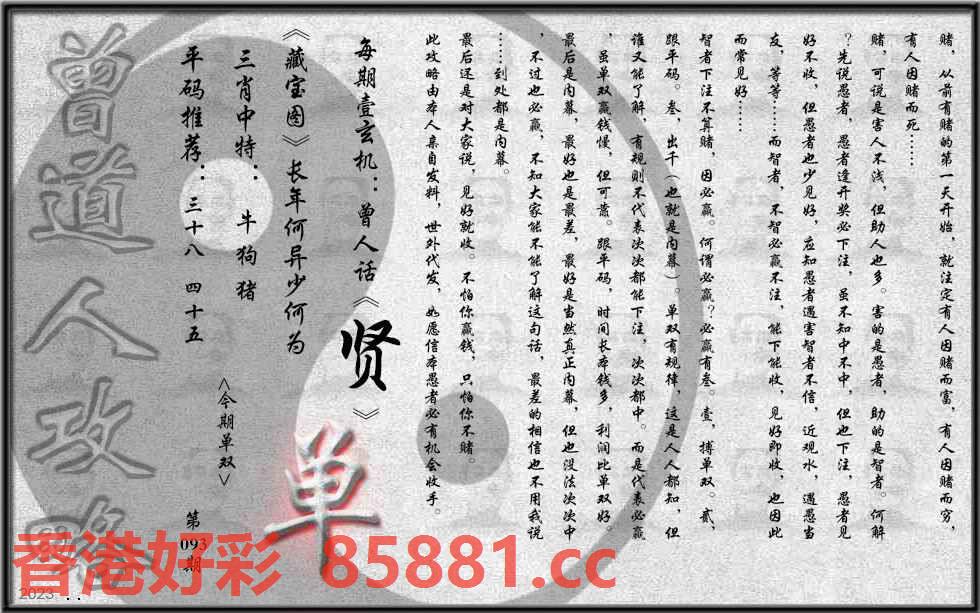 赌，从前有赌的第一天开始，就注定有人因赌而富，有人因赌而穷，
有人因赌而死……
赌，可说是害人不浅，但助人也多。害的是愚者，助的是智者。何解
？先说愚者，愚者逢开奖必下注，虽不知中不中，但也下注，愚者见
好不收，但愚者也少见好，应知愚者遇害智者不信，近观水，遇愚当
友，等等……而智者，不智必赢不注，能下能收，见好即收，也因此
而常见好……
智者下注不算赌，因必赢。何谓必赢？必赢有叁。壹，搏单双。贰，
跟平码。叁，出千（也就是内幕）。单双有规律，这是人人都知，但
谁又能了解，有规则不代表次次都能下注，次次都中。而是代表必赢
，虽单双赢钱慢，但可靠。跟平码，时间长本钱多，利润比单双好。
最后是内幕，最好也是最差，最好是当然真正内幕，但也没法次次中
，不过也必赢，不知大家能不能了解这句话，最差的相信也不用我说
……到处都是内幕。
最后还是对大家说，见好就收。不怕你赢钱，只怕你不赌。
此攻略由本人亲自发料，世外代发，如愿信本愚者必有机会收手。
每期壹玄机：曾人话《贤》
《藏宝图》长年何异少何为
三肖中特：牛狗猪
平码推荐：三十八 四十五
<今期单双>
单
第
093
期
曾道人攻略
香港好彩 85881.cc
2023